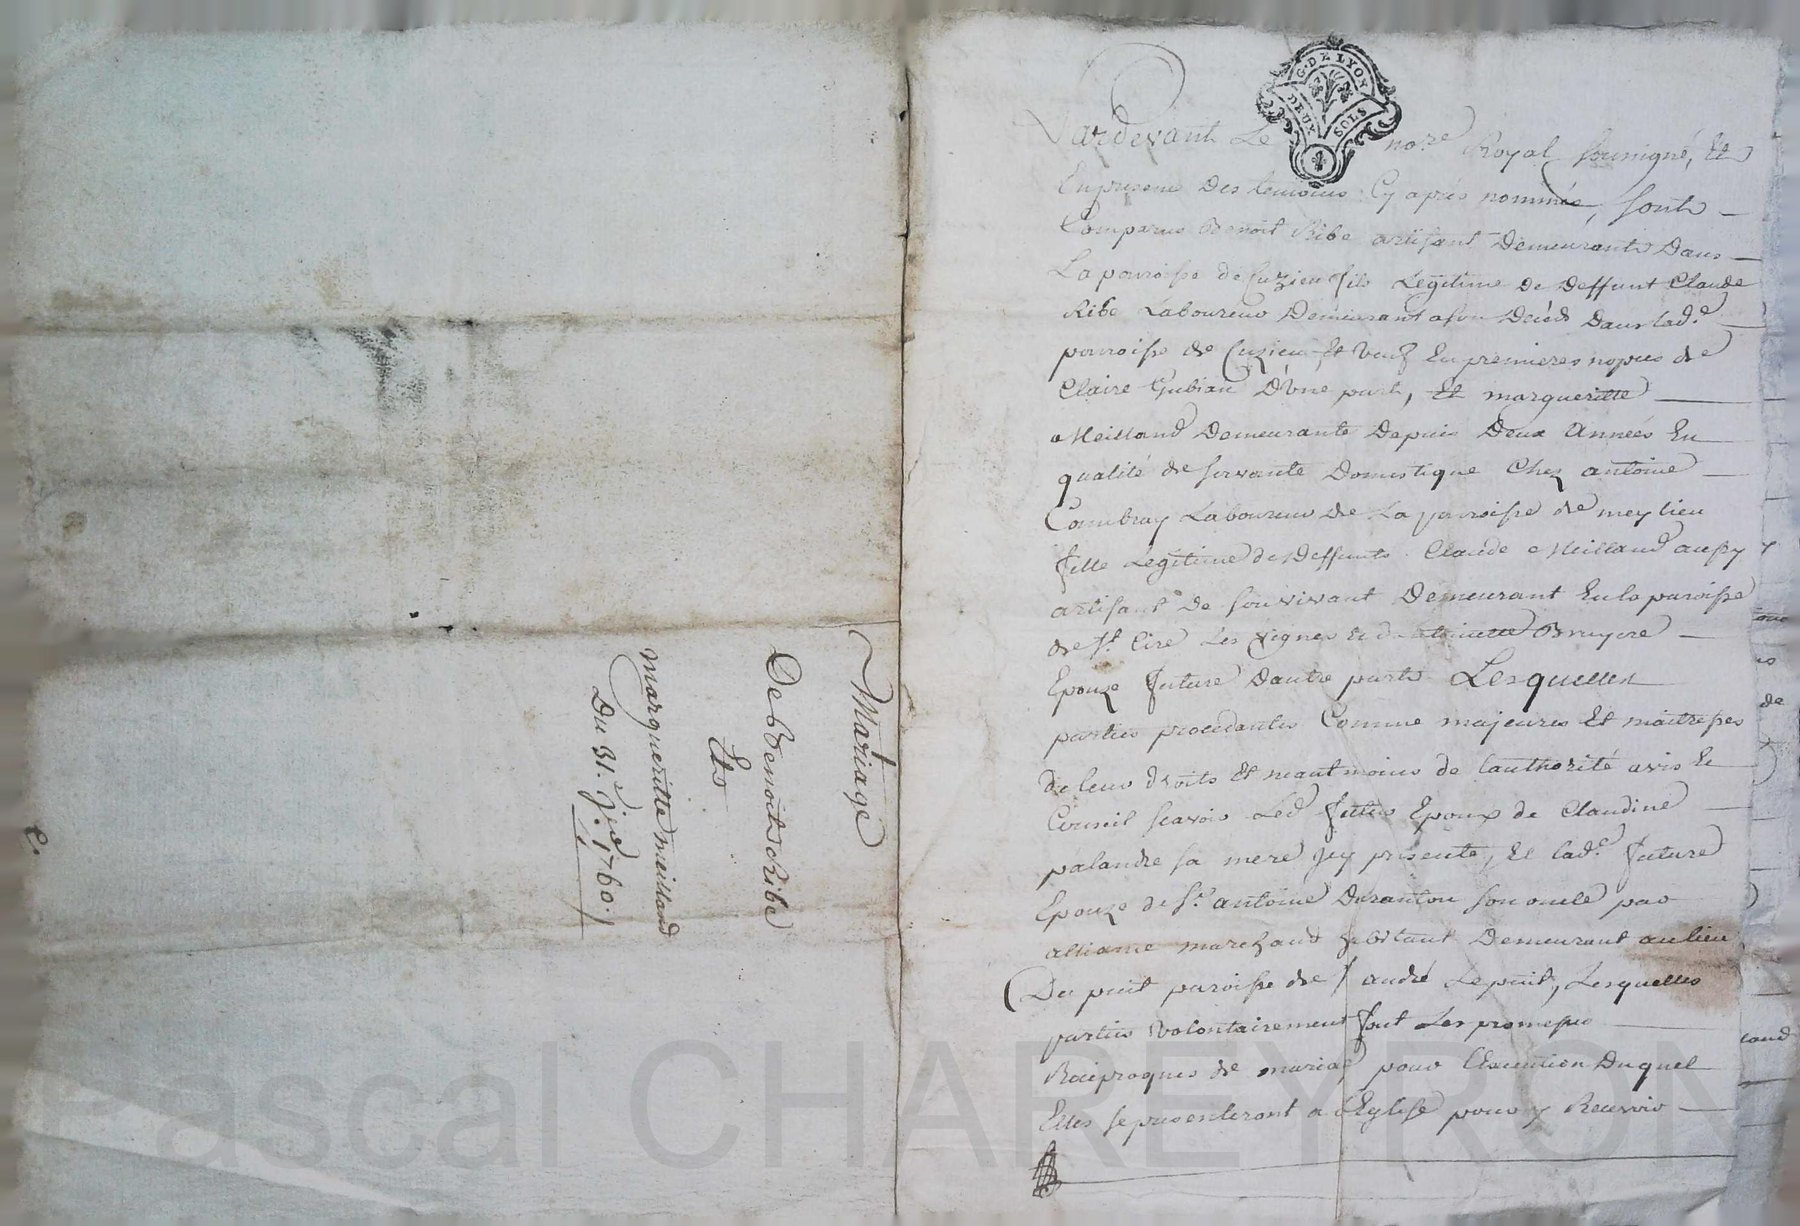 Mariage
De benoit Ribe
Et
margueritte meilland
Du 31.e J.er 1760.
G. DE LYON
DEUX SOLS
Pardevant Le no.re Royal soussigné, Et
En presence Des temoins Cy aprés nommés, sont
Comparus Benoit Ribe artisant Demeurant Dans
La paroisse de Cuzieu fils Legitime de deffunt Claude
Ribe Laboureur Demeurant a son Décéds Dans lad.e
paroisse de Cuzieu, Et veuf En premieres nopces de
Claire Gubian D'une part, Et margueritte
Meilland Demeurante Depuis Deux Années En
qualité de servante Domestique Chez antoine
Combray Laboureur de La paroisse de meylieu
fille Legitime de Deffunts Claude Meilland aussy
artisant de son vivant Demeurant En la paroisse
de S.t Cire Les Vignes et d' antoinette Bruyere
Epouze future D'autre part Lesquelles
parties procedantes Comme majeures Et maitresses
de leurs droits Et neantmoins de l'authorité avis Et
Conseil scavoir Led futur Epoux de Claudine
palandre sa mere Jcy presente, Et lad.e future
Epouze de S.r antoine Duranton son oncle par
alliance marchand habitant Demeurant au lieu
Du puit paroisse de S andré Le puit, Lesquelles
parties volontairement font Les promesses
Reciproques de mariage pour L'execution Duquel
Elles se presenteront a L'Eglise pour y Recevoir
Pascal CHAREYRON